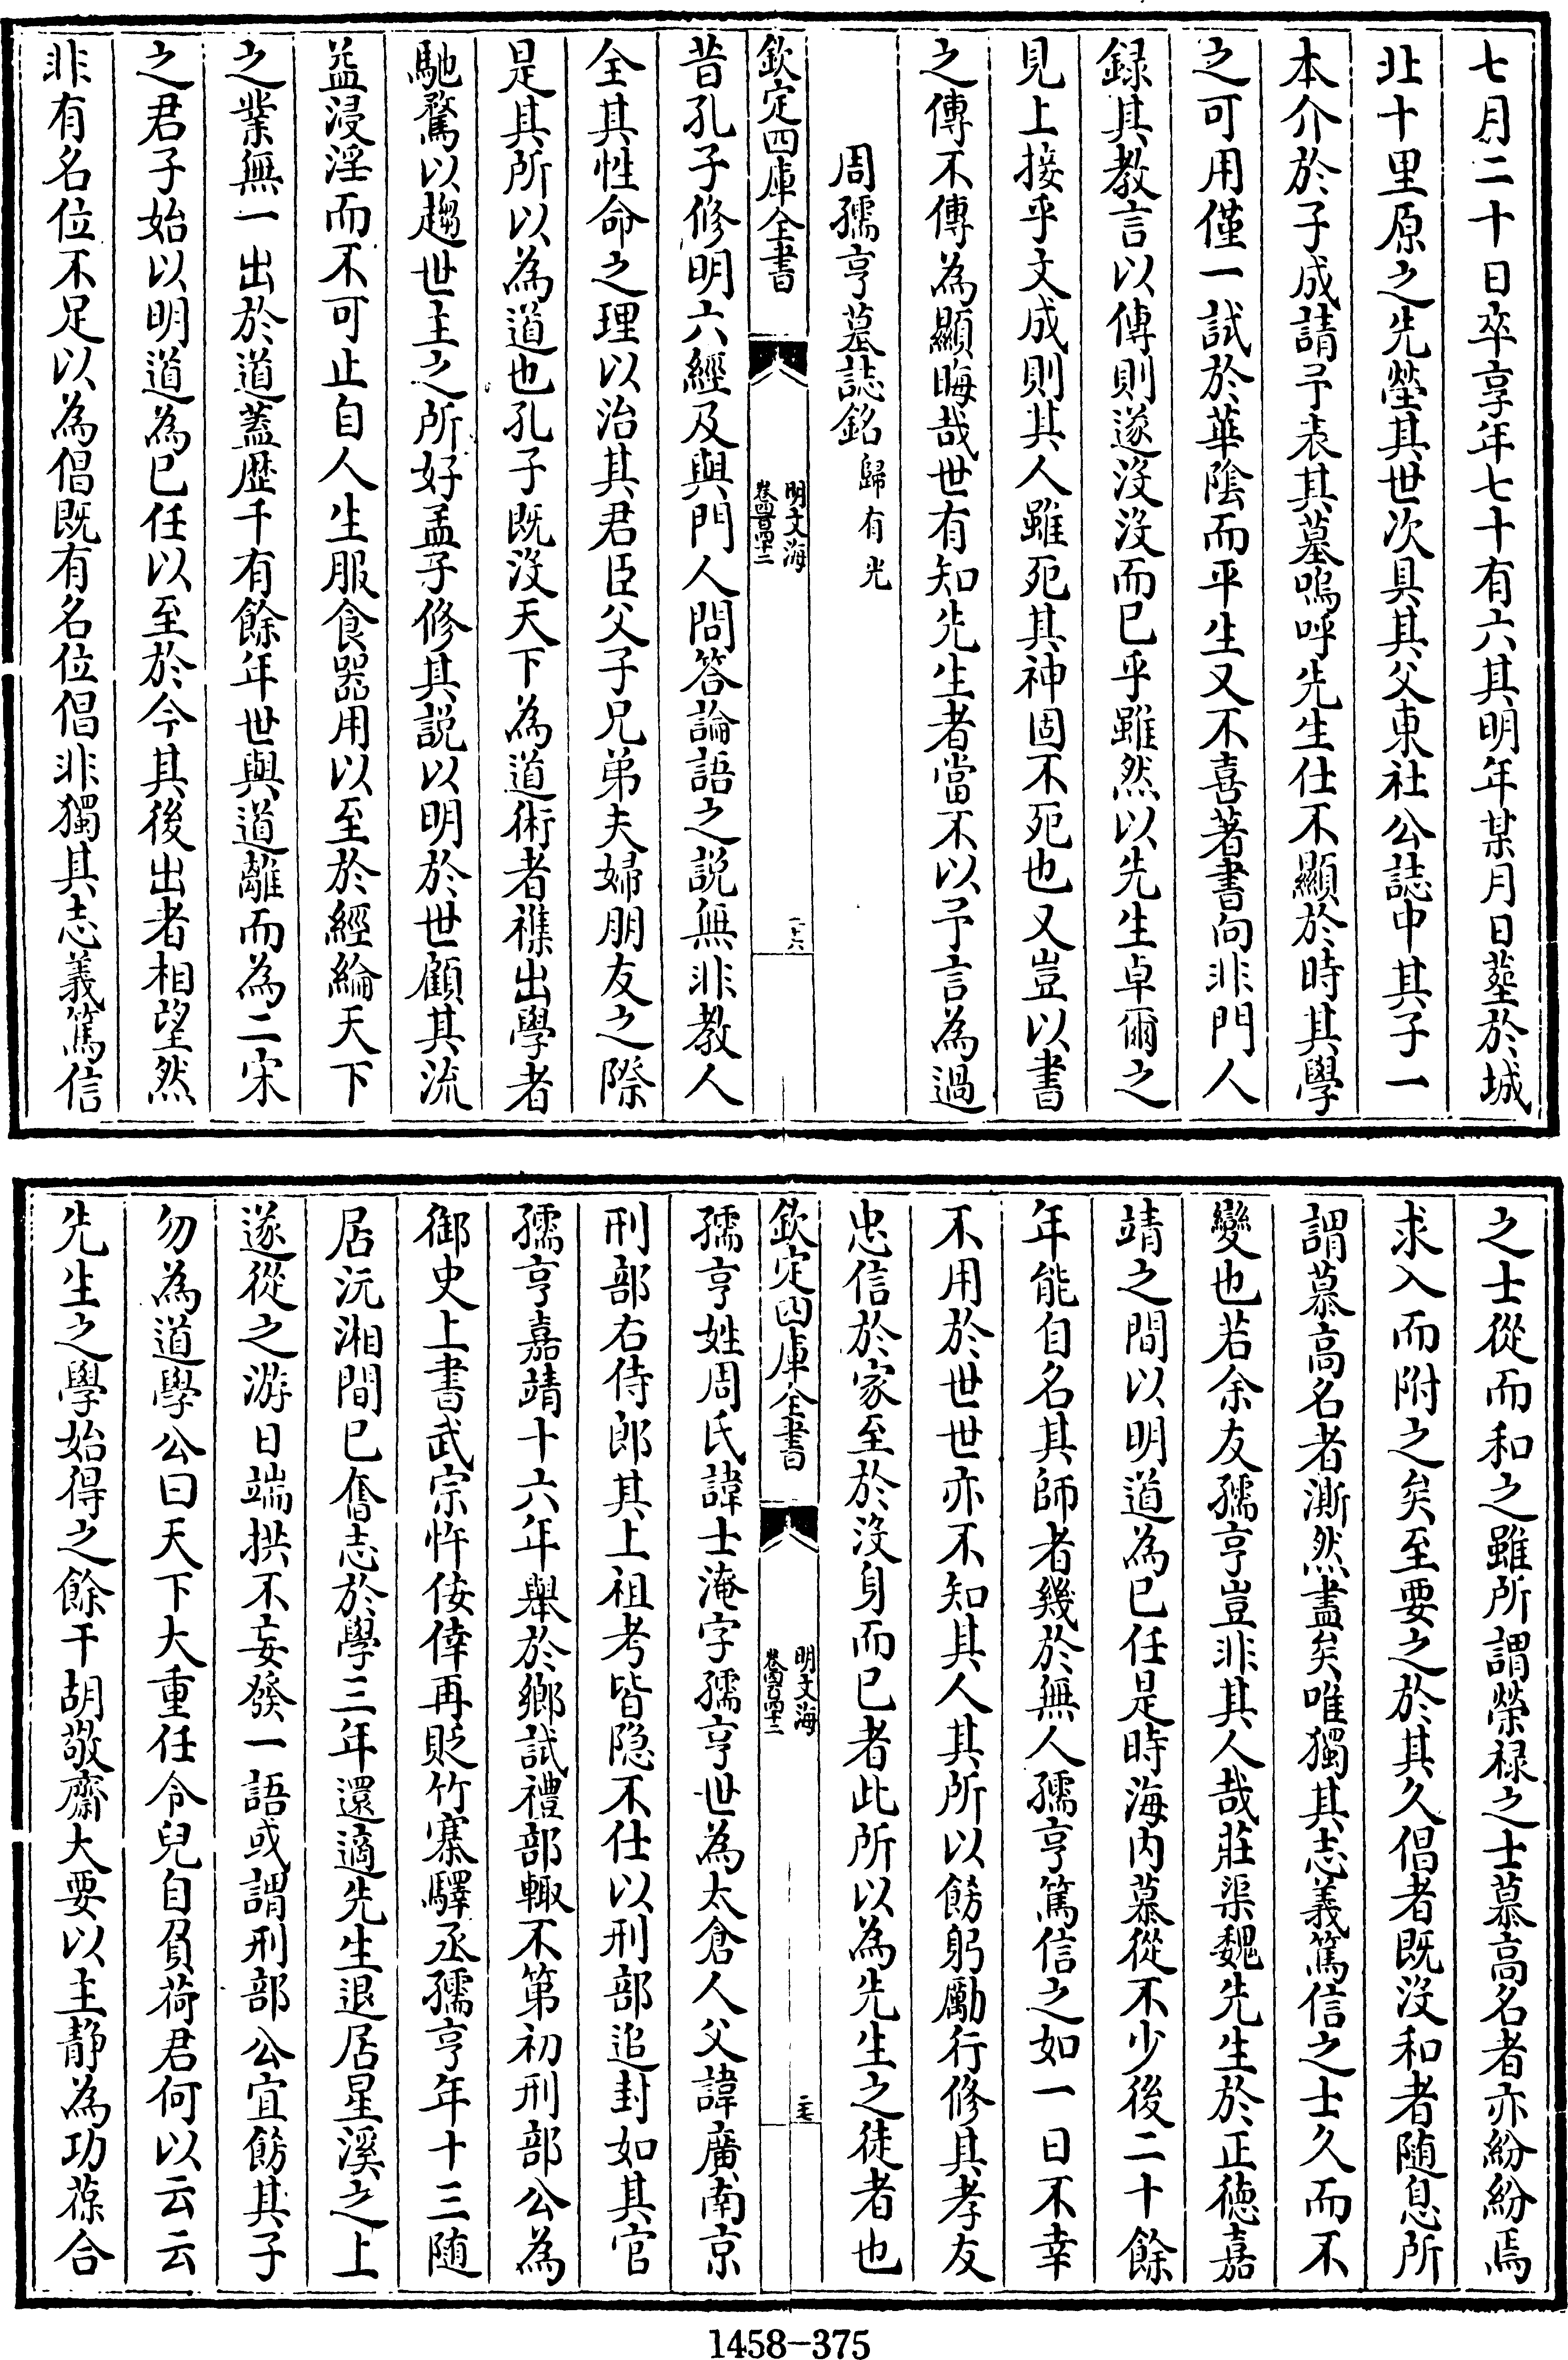 七月二十日卒享年七十有六其明年某月日葬於城
北十里原之先塋其世次具其父東社公誌中其子一
本介於子成請予表其墓嗚呼先生仕不顯於時其學
之可用僅一試於華陰而平生又不喜著書向非門人
録其教言以傳則遂没没而已乎雖然以先生卓爾之
見上接乎文成則其人雖死其神固不死也又豈以書
之傳不傳為顯晦哉世有知先生者當不以予言為過
周孺亨墓誌銘歸有光
欽定四庫全書
明文海
卷四百四十二
二十六
昔孔子修明六經及與門人問答論語之説無非教人
全其性命之理以治其君臣父子兄弟夫婦朋友之際
是其所以為道也孔子既没天下為道術者襍出學者
馳騖以趨世主之所好孟子修其説以明於世顧其流
益浸淫而不可止自人生服食器用以至於經綸天下
之業無一出於道蓋歴千有餘年世與道離而為二宋
之君子始以明道為己任以至於今其後出者相望然
非有名位不足以為倡既有名位倡非獨其志義篤信
之士從而和之雖所謂榮禄之士慕高名者亦紛紛焉
求入而附之矣至要之於其久倡者既没和者随息所
謂慕高名者漸然盡矣唯獨其志義篤信之士久而不
變也若余友孺亨豈非其人哉莊渠魏先生於正德嘉
靖之間以明道為己任是時海内慕從不少後二十餘
年能自名其師者幾於無人孺亨篤信之如一日不幸
不用於世世亦不知其人其所以飭躬勵行修其孝友
忠信於家至於没身而已者此所以為先生之徒者也
欽定四庫全書
明文海
卷四百四十二
二十七
孺亨姓周氏諱士淹字孺亨世為太倉人父諱廣南京
刑部右侍郎其上祖考皆隐不仕以刑部追封如其官
孺亨嘉靖十六年舉於鄉試禮部輙不第初刑部公為
御史上書武宗忤佞倖再貶竹寨驛丞孺亨年十三随
居沅湘間已奮志於學三年還適先生退居星溪之上
遂從之游日端拱不妄發一語或謂刑部公宜飭其子
勿為道學公曰天下大重任令兒自負荷君何以云云
先生之學始得之餘干胡敬齋大要以主静為功葆合
1458-375